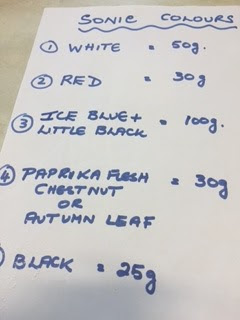 SONIC COLOURS
① WHITE = 50g.
② RED = 30g
③ ICE BLUE + LITTLE BLACK = 100g.
④ PAPRIKA FLESH = 30g
CHESTNUT
OR
AUTUMN LEAF
BLACK = 25g